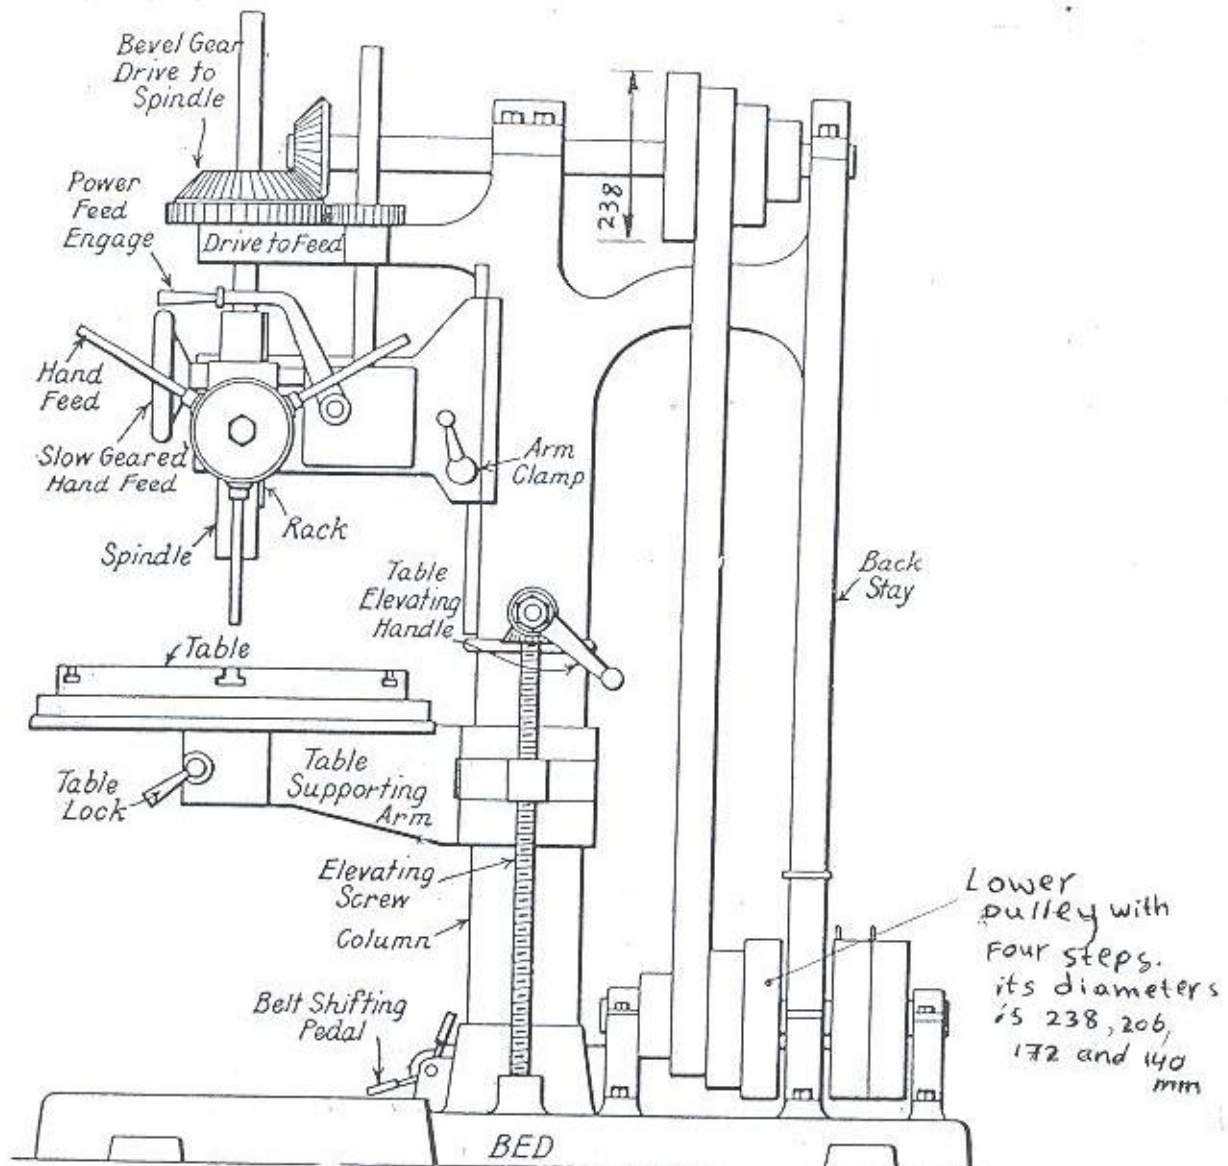 Bevel Gear
Drive to
Spindle
Power
Feed
Engage
Drive to Feed
238
Hand
Feed
Slow Geared
Hand Feed
Rack
Spindle
Arm
Clamp
Table
Elevating
Handle
Back
Stay
Table
Table
Lock
Table
Supporting
Arm
Elevating
Screw
Column
Belt Shifting
Pedal
Lower
pulley with
Four steps.
its diameters
is 238, 206,
172 and 140
mm
BED